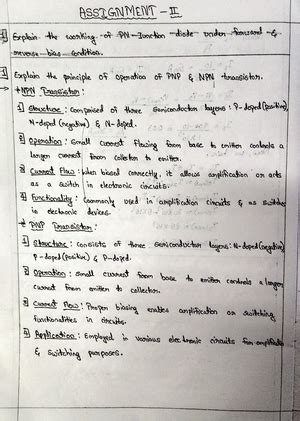 ASSIGNMENT - II
1 Explain the working of PN-Junction diode under forward &
reverse bias condition.
1 Explain the principle of operation of PNP & NPN transistor.
→ * NPN Transistor :
1 Structure : Comprised of three semiconductor layers : P-doped (positive),
N-doped (negative) & N-doped.
2 Operation : Small current flowing from base to emitter controls a
larger current from collector to emitter.
3 Current Flow : When biased correctly, it allows amplification or acts
as a switch in electronic circuits.
4 Functionality : Commonly used in amplification circuits & as switches
in electronic devices.
* PNP Transistor :
1 Structure : Consists of three semiconductor layers : N-doped (negative)
P-doped (positive) & P-doped.
2 Operation : Small current from base to emitter controls a larger
current from emitter to collector.
3 Current Flow : Proper biasing enables amplification or switching
functionalities in circuits.
4 Application : Employed in various electronic circuits for amplification
& switching purposes.